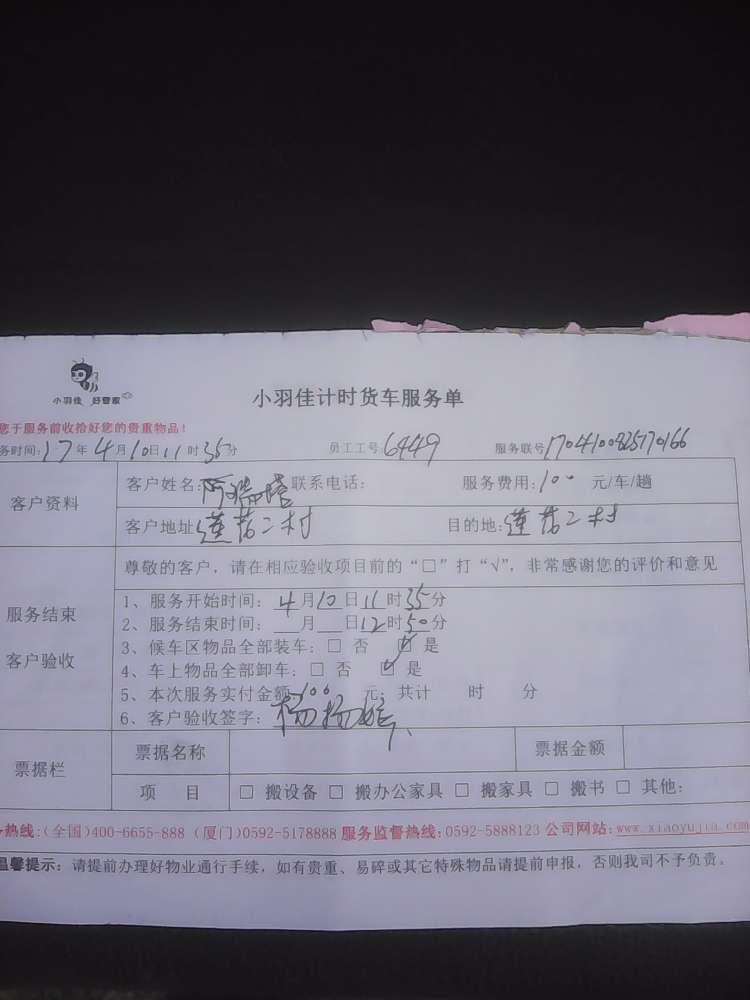 小羽佳 好管家
小羽佳计时货车服务单
您于服务前收拾好您的贵重物品!
务时间: 17年4月10日11时35分 员工工号: 6449 服务联号 1704100825170166
客户资料
客户姓名: 阿瑞塔 联系电话: 服务费用: 100 元/车/趟
客户地址: 莲花二村 目的地: 莲花二村
服务结束
客户验收
尊敬的客户,请在相应验收项目前的“□”打“√”,非常感谢您的评价和意见
1、服务开始时间: 4月10日11时35分
2、服务结束时间: __月__日12时50分
3、候车区物品全部装车: □ 否 ☑ 是
4、车上物品全部卸车: □ 否 ☑ 是
5、本次服务实付金额 100 元; 共计 时 分
6、客户验收签字:
票据栏
票据名称 票据金额
项 目 □ 搬设备 □ 搬办公家具 □ 搬家具 □ 搬书 □ 其他:
务热线:(全国)400-6655-888 (厦门)0592-5178888 服务监督热线:0592-5888123 公司网站:www.xiaoyujia.com
温馨提示: 请提前办理好物业通行手续,如有贵重、易碎或其它特殊物品请提前申报,否则我司不予负责。